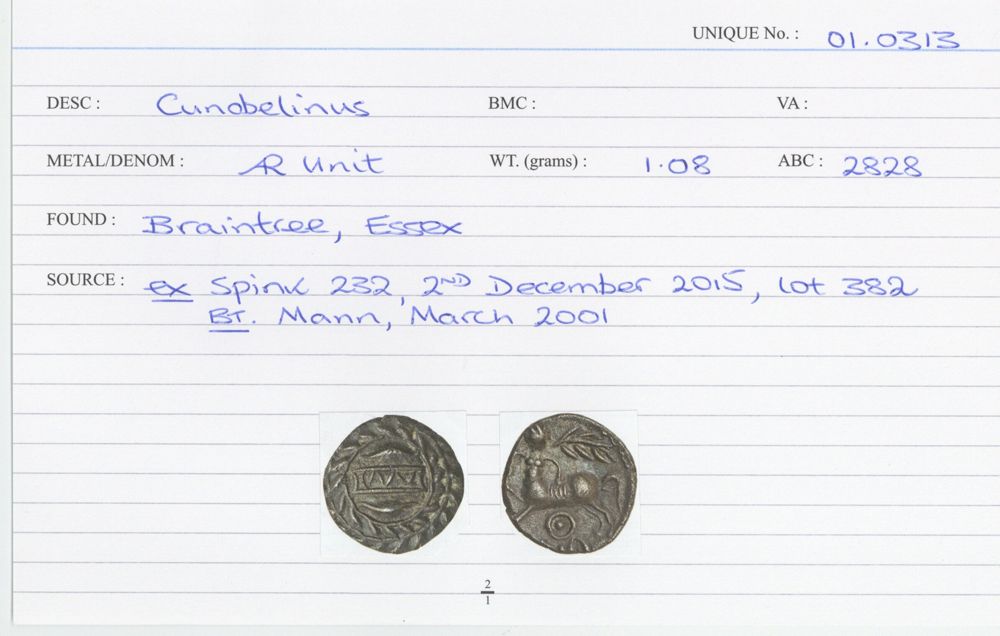 UNIQUE No. : 01.0313
DESC : Cunobelinus BMC : VA :
METAL/DENOM : AR Unit WT. (grams) : 1.08 ABC : 2828
FOUND : Braintree, Essex
SOURCE : ex Spink 232, 2ND December 2015, Lot 382
BT. Mann, March 2001
2
1